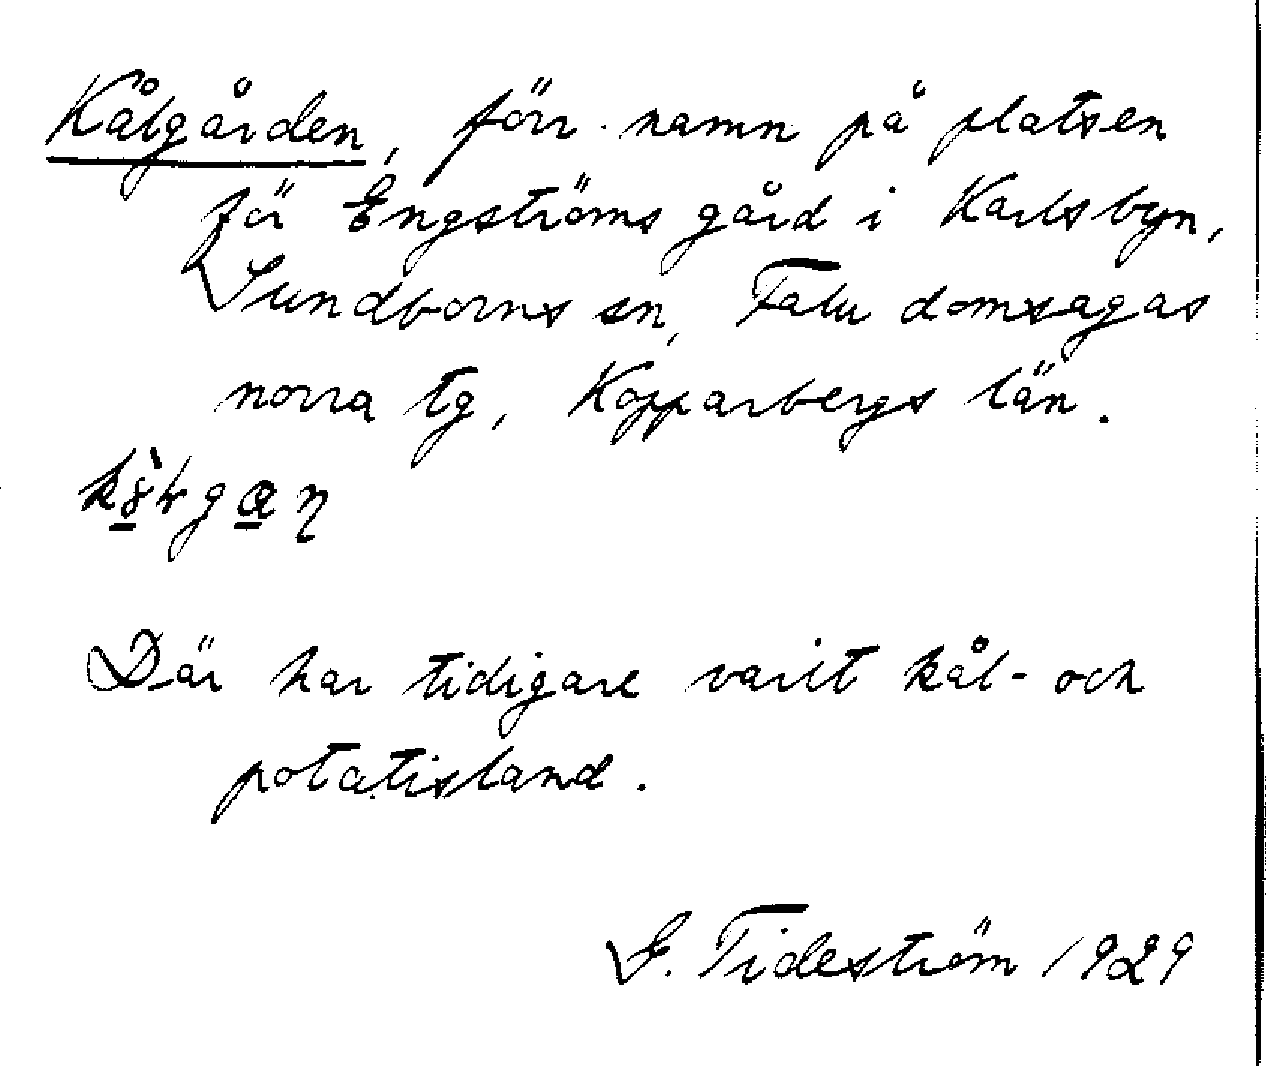 Kålgården, förr namn på platsen
för Engströms gård i Karlsbyn,
Sundborns sn, Falu domsagas
norra tg, Kopparbergs län.
Där har tidigare varit kål- och
potatisland.
G. Tideström 1929